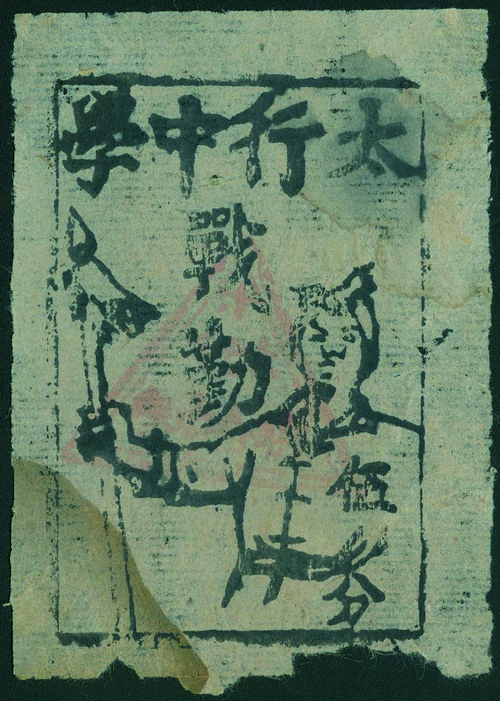 太行中學
戰勤
伍